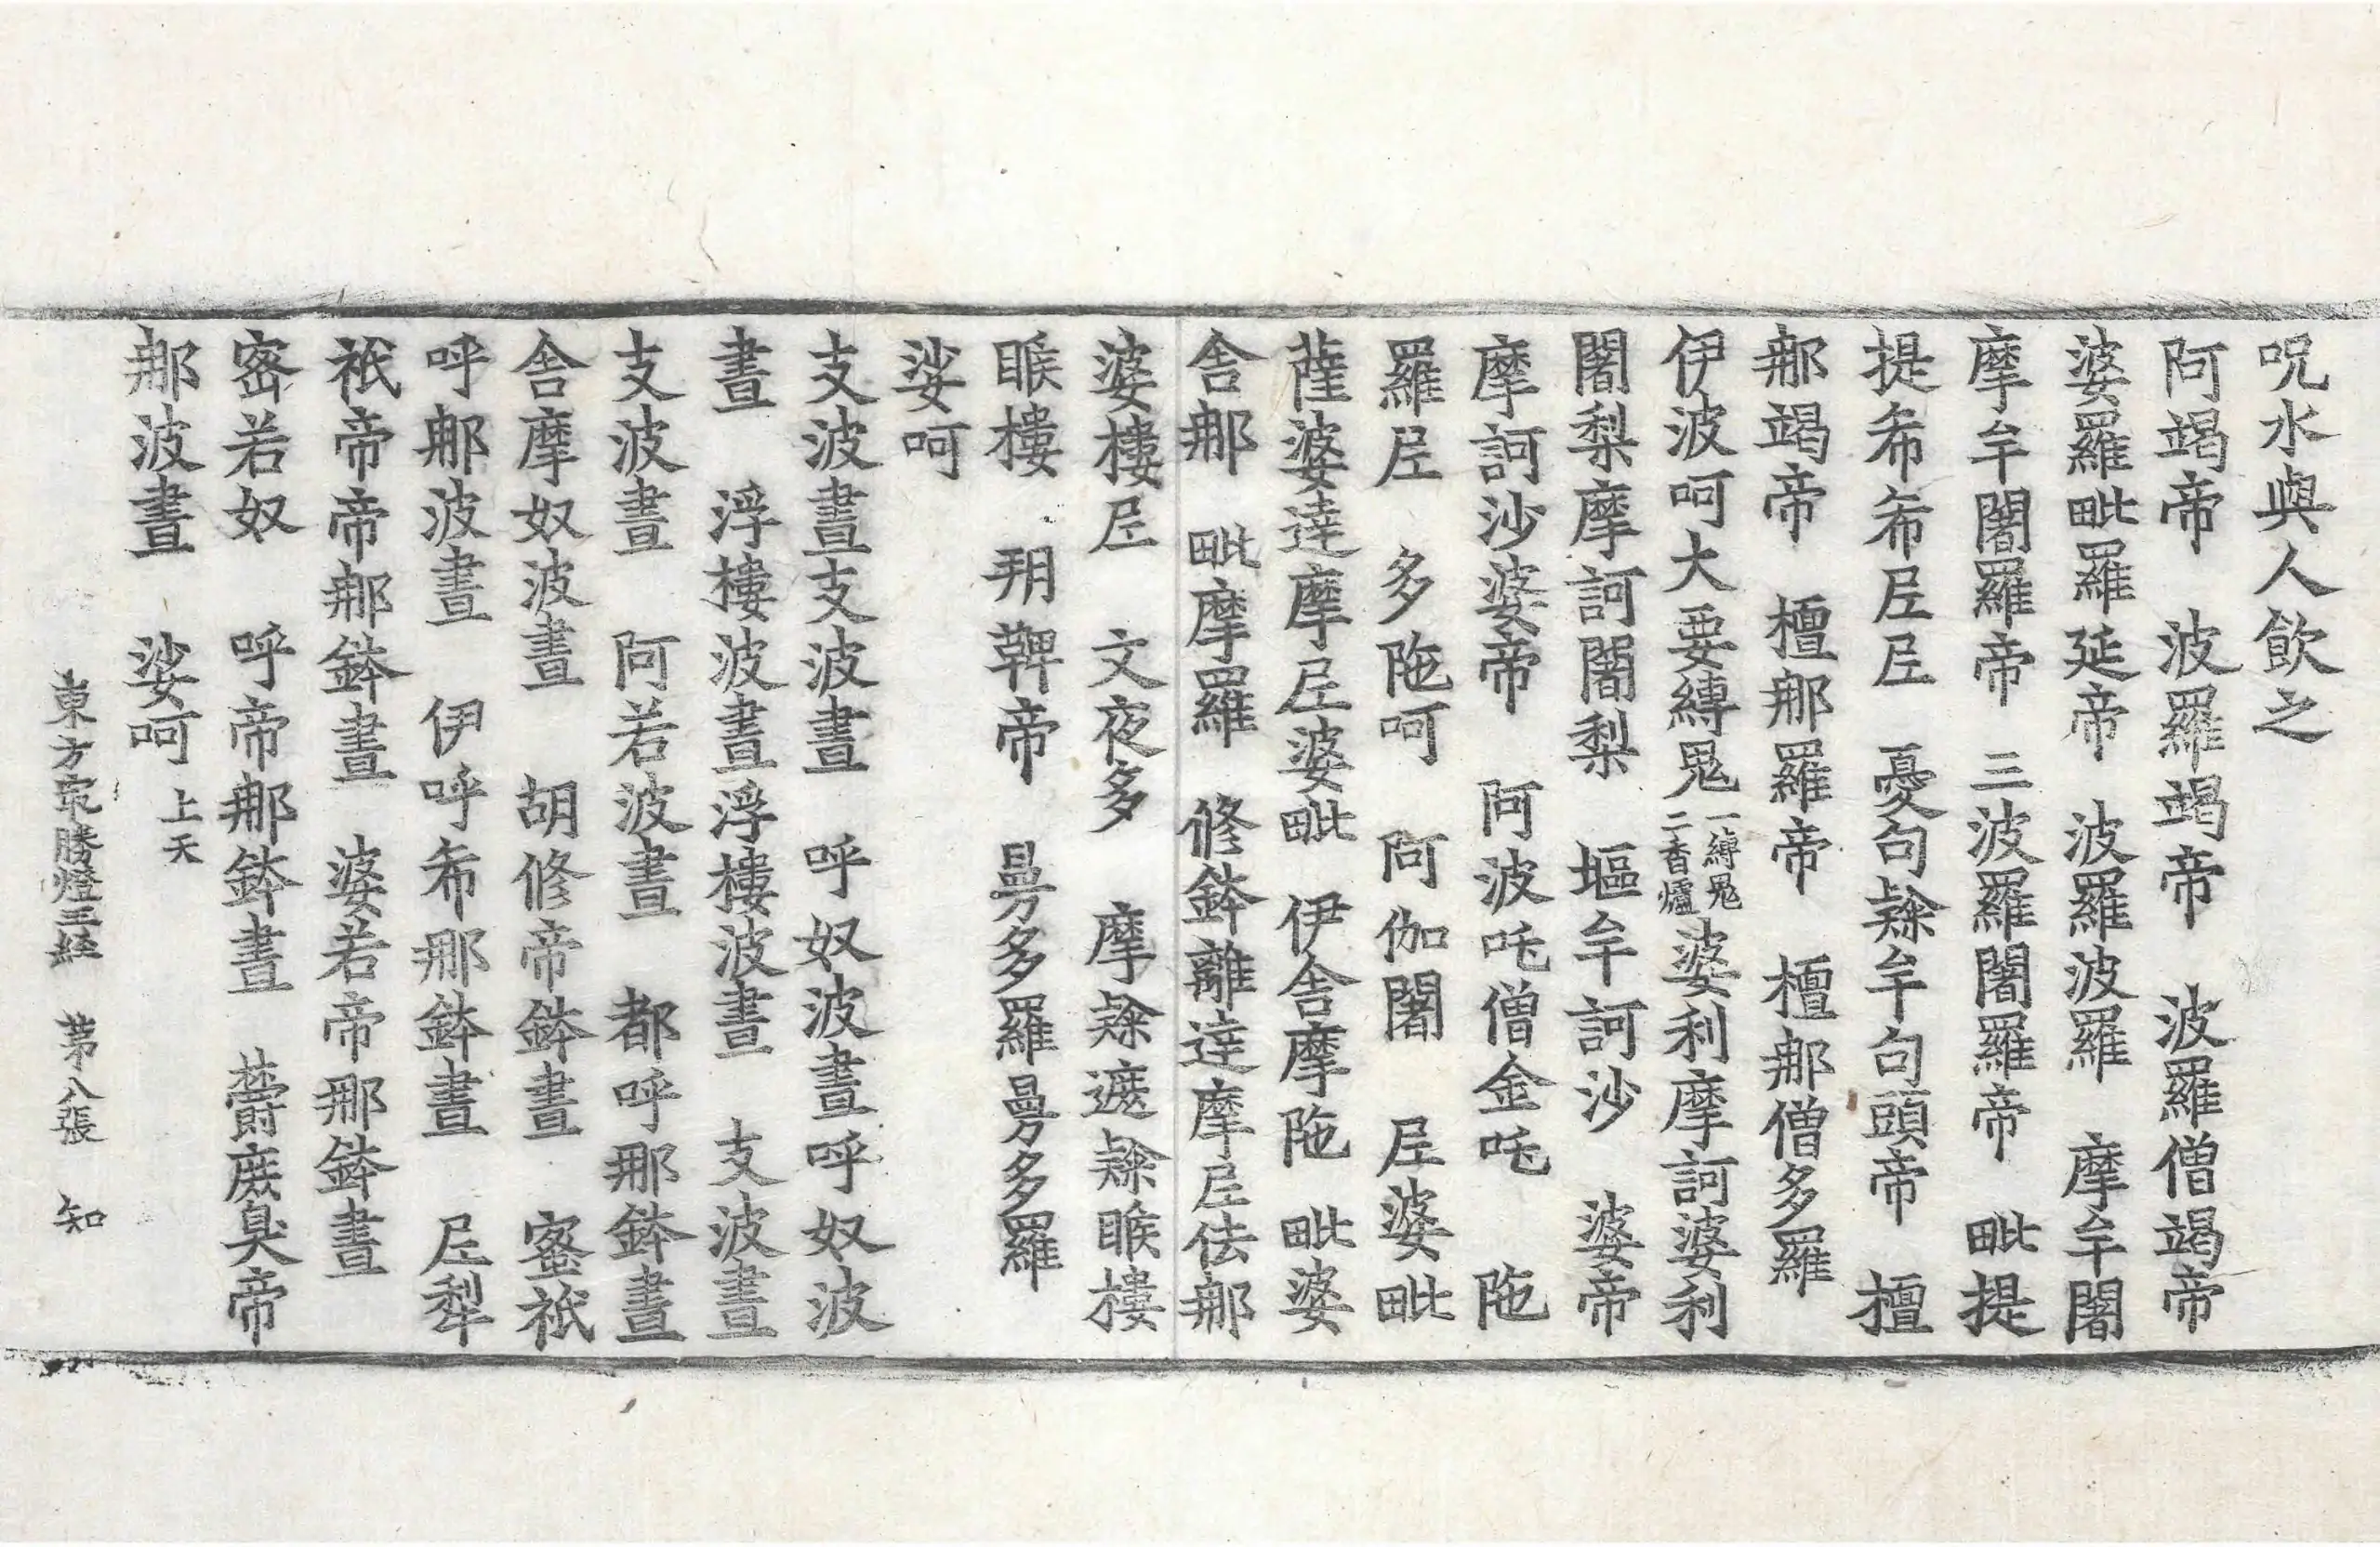 呪水與人飲之
阿竭帝 波羅竭帝 波羅僧竭帝
婆羅毗羅延帝 波羅波羅 摩牟闍
摩牟闍羅帝 三波羅闍羅帝 毗提
提希希𡰱𡰱 憂句隸牟句頭帝 檀
那竭帝 檀那羅帝 檀那僧多羅
伊波呵大要縛鬼一縛鬼二香爐婆利摩訶婆利
闍梨摩訶闍梨 塸牟訶沙 婆帝
摩訶沙婆帝 阿波吒僧金吒 陁
羅𡰱 多陁呵 阿伽闍 𡰱婆毗
薩婆達摩𡰱婆毗 伊舍摩陁 毗婆
舍那 毗摩羅 修鉢離達摩𡰱佉那
婆樓𡰱 文夜多 摩隸遮隸睺樓
睺樓 䎳鞞帝 曼多羅曼多羅
娑呵
支波晝支波晝 呼奴波晝呼奴波
晝 浮樓波晝浮樓波晝 支波晝
支波晝 阿若波晝 都呼那鉢晝
舍摩奴波晝 胡修帝鉢晝 蜜祇
呼那波晝 伊呼希那鉢晝 𡰱犁
祇帝帝那鉢晝 婆若帝那鉢晝
密若奴 呼帝那鉢晝 欝庻臭帝
那波晝 娑呵上天
東方㝡勝燈王經 第八張 知